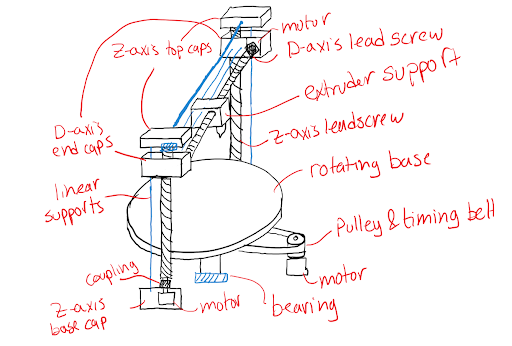 motor
Z-axis top caps
D-axis lead screw
extruder support
Z-axis leadscrew
D-axis
end caps
rotating base
linear
supports
Pulley & timing belt
coupling
motor
Z-axis
base cap
motor
bearing